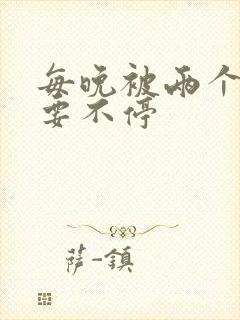 每晚被两个
要不停
萨-镇